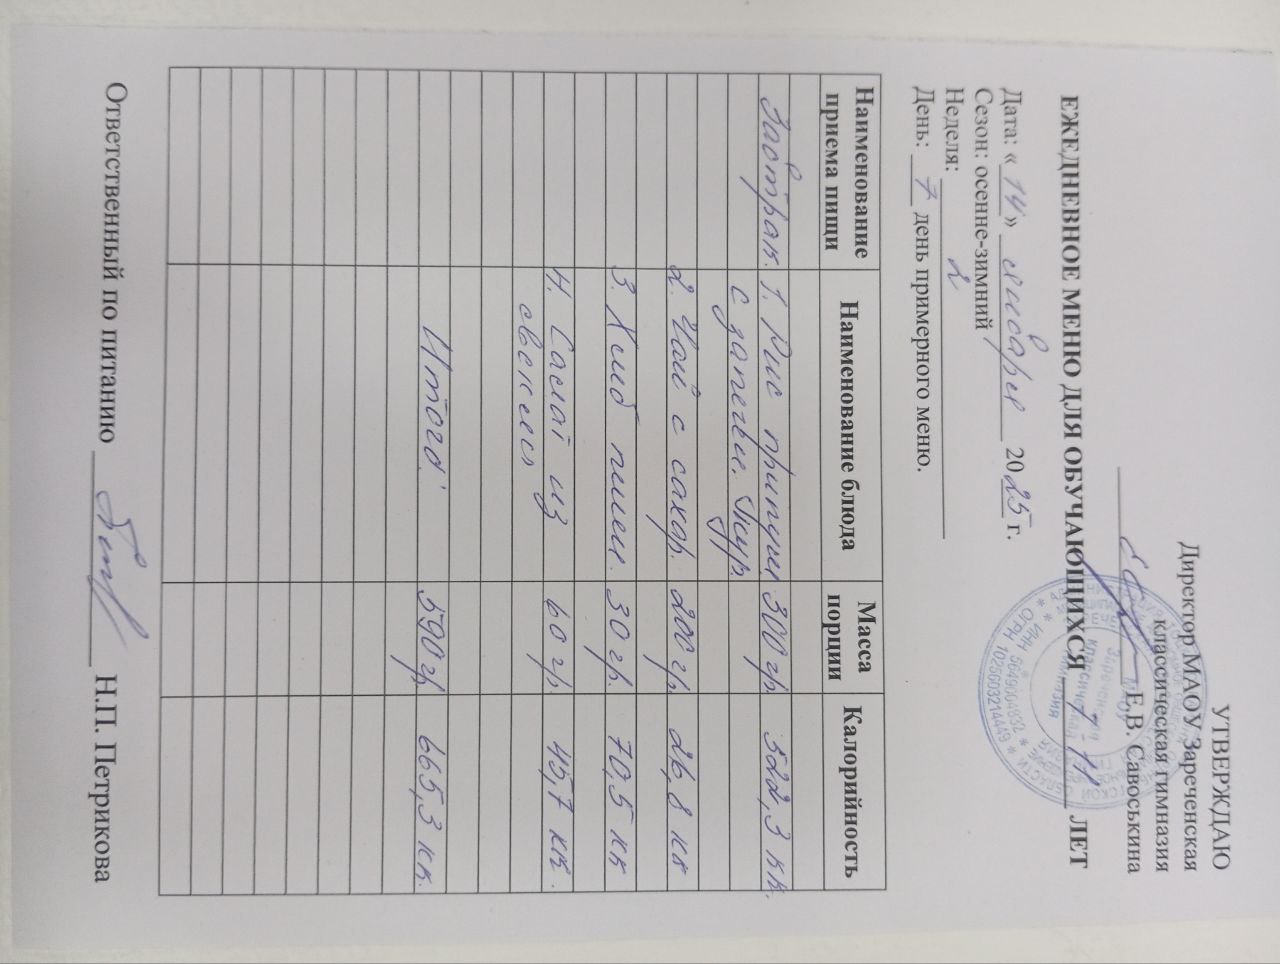 УТВЕРЖДАЮ
Директор МАОУ Зареченская
классическая гимназия
Е.В. Савоськина
ЕЖЕДНЕВНОЕ МЕНЮ ДЛЯ ОБУЧАЮЩИХСЯ 7-11 ЛЕТ
Дата: « 14 » января 2025 г.
Сезон: осенне-зимний
Неделя: 2
День: 7 день примерного меню.
Наименование приема пищи Наименование блюда Масса порции Калорийность
Завтрак. 1. Рис припущ. 300 гр. 522,3 кк.
с запечён. кур.
2. Чай с сахар. 200 гр. 26,8 кк
3. Хлеб пшен. 30 гр. 70,5 кк
4. Салат из 60 гр. 45,7 кк.
свеклы
Итого: 590 гр. 665,3 кк.
Ответственный по питанию Н.П. Петрикова
ИНН 5649004832 * ОГРН 1025603214449